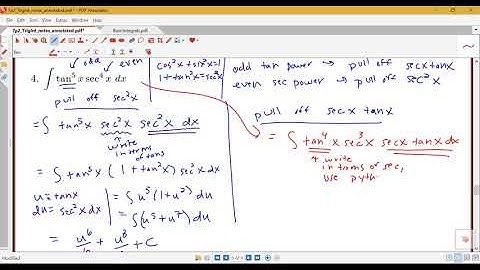 7p2_TrigInt_notes_annotated.pdf* - PDF Annotator
7p2_TrigInt_notes_annotated.pdf*
odd even
4. ∫ tan⁵ x sec⁴ x dx
cos²x + sin²x = 1
1 + tan²x = sec²x
odd tan power → pull off secx tanx
even sec power → pull off sec²x
pull off sec²x
= ∫ tan⁵x sec²x sec²x dx
↑ write
in terms
of tans
= ∫ tan⁵x (1 + tan²x) sec²x dx
u = tanx
du = sec²x dx
= ∫ u⁵ (1 + u²) du
= ∫ (u⁵ + u⁷) du
= u⁶/6 + u⁸ + C
pull off secx tanx
= ∫ tan⁴x sec³x secx tanx dx
↑ write
in terms of sec,
use pyth
Modified